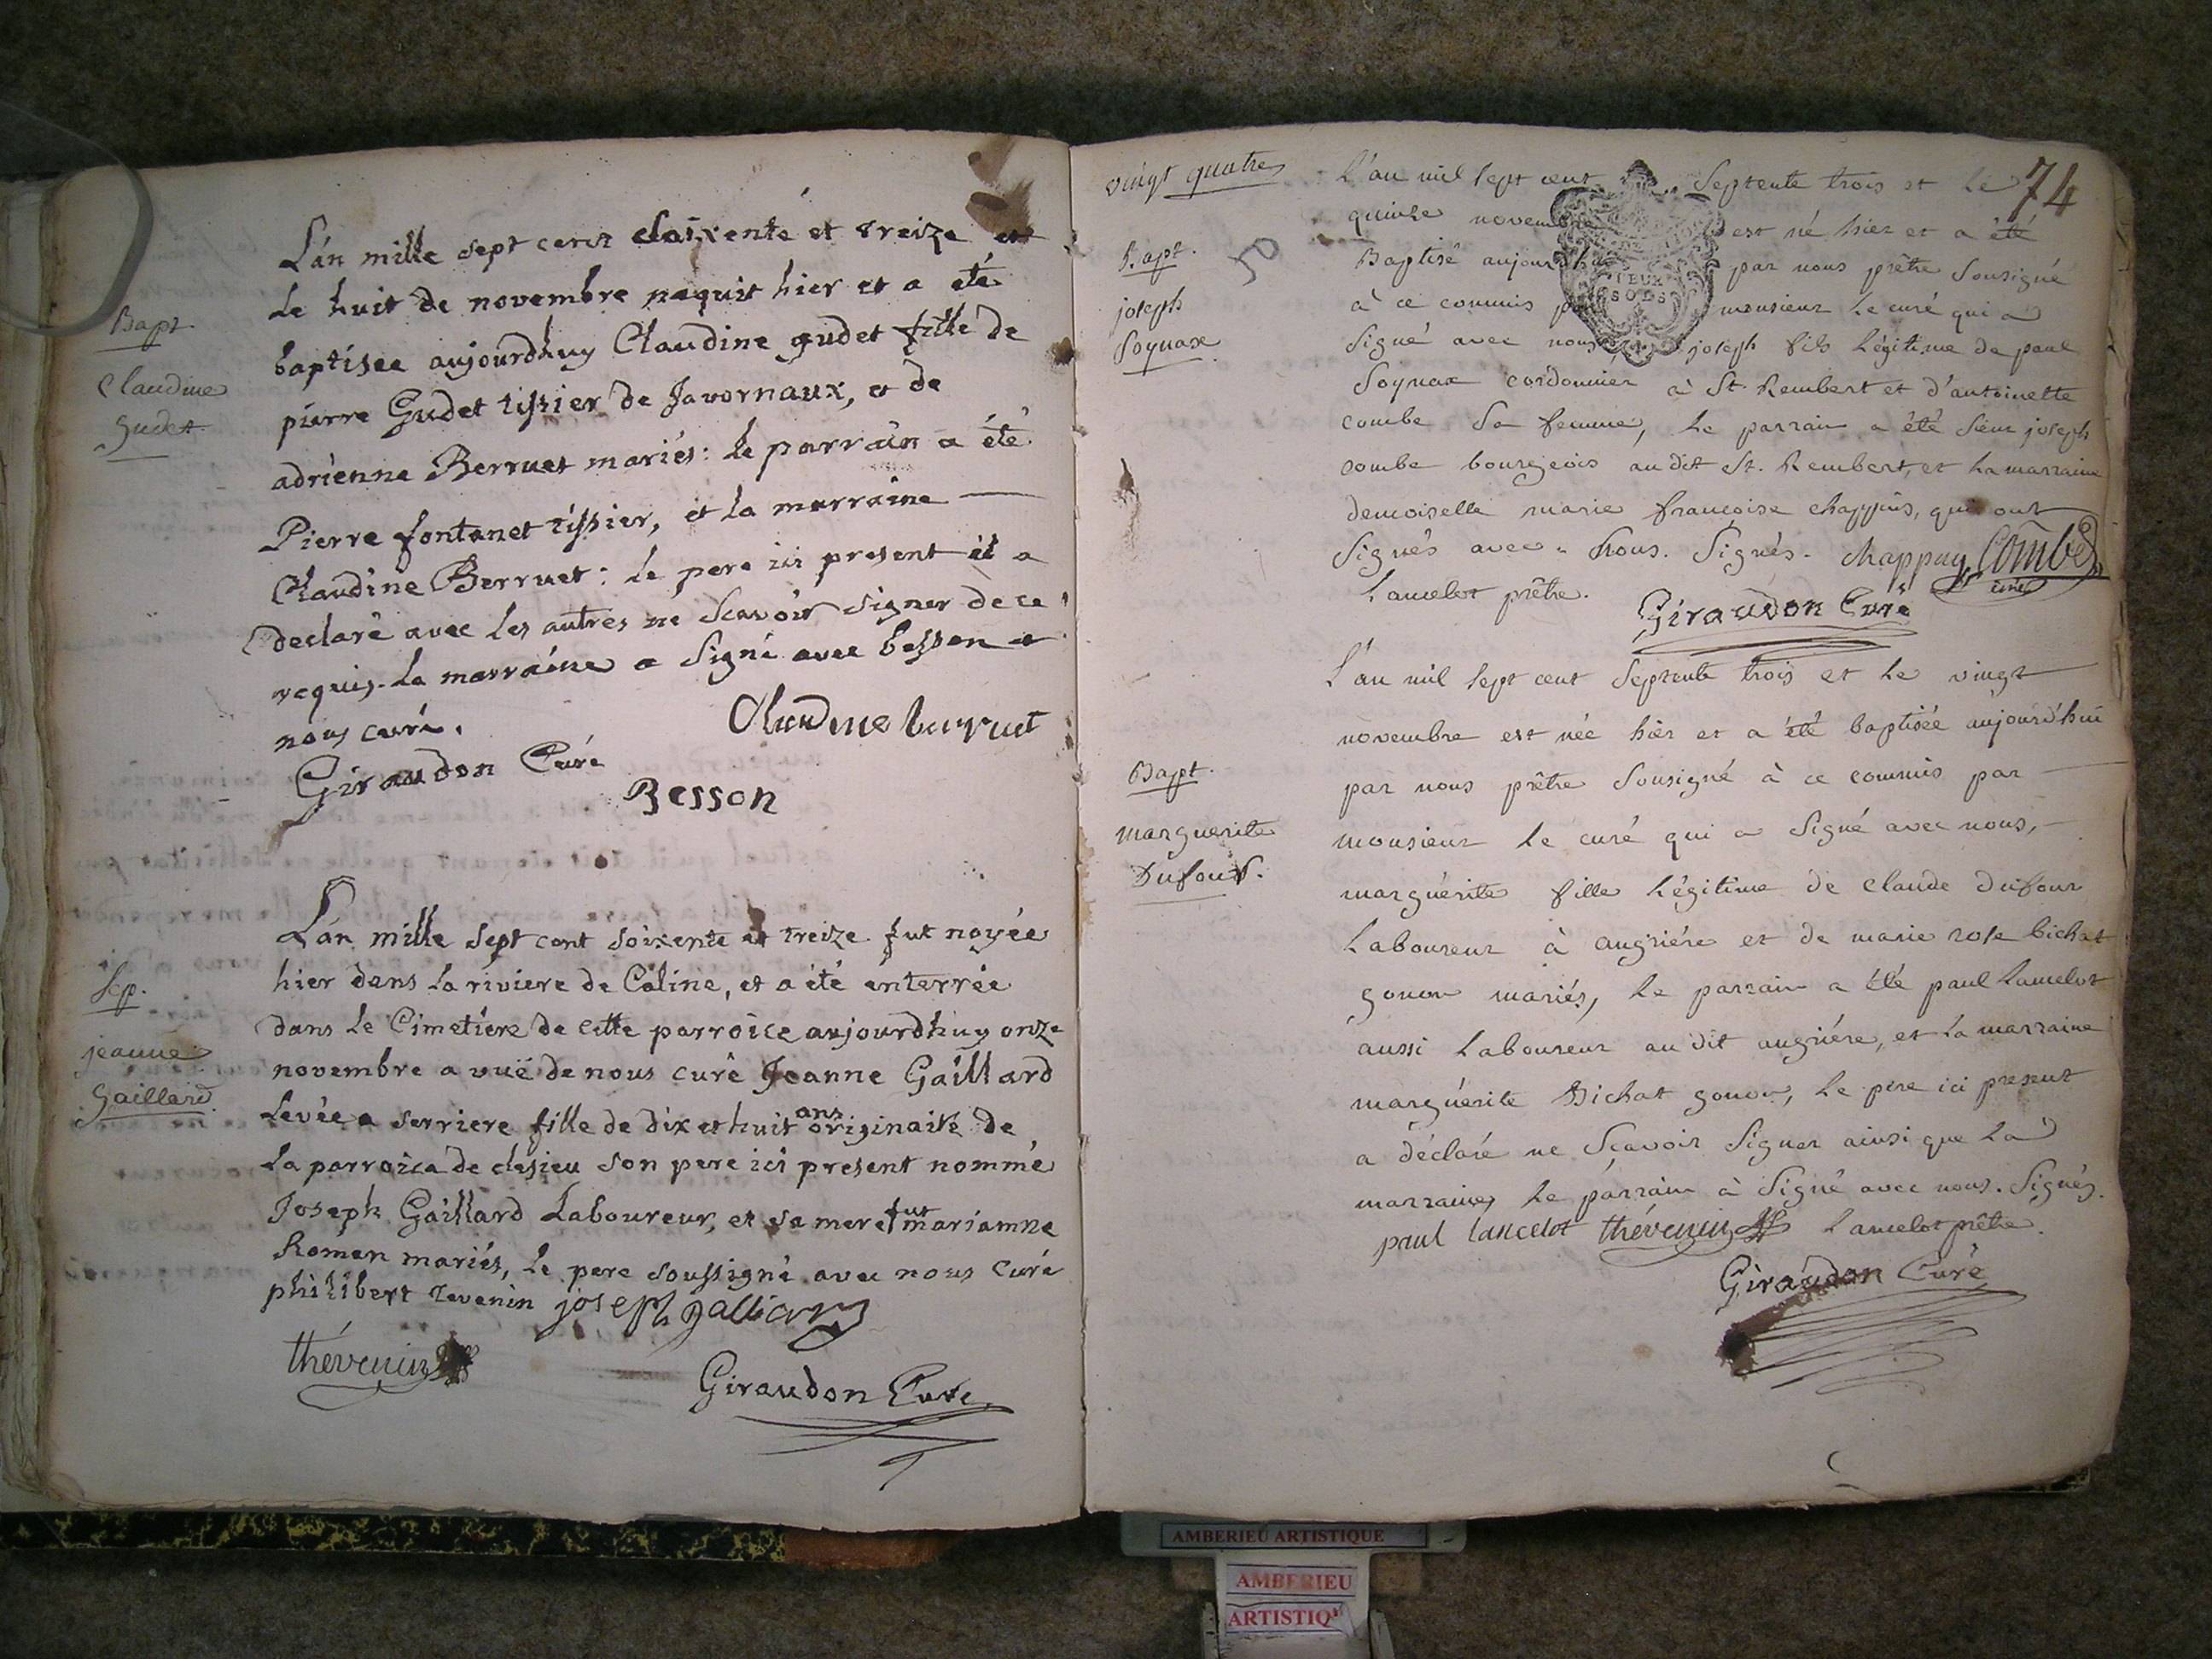 L'an mille sept cent soixente et treize et
Bapt.
Claudine
Gudet
le huit de novembre naquit hier et a été
baptisée aujourdhuy Claudine gudet fille de
pierre Gudet tissier de Javornaux, et de
adrienne Berruet mariés: le parrain a été
Pierre fontanet tissier, et la marraine
Claudine Berruet: le pere ici present et a
declaré avec les autres ne Scavoir signer de ce
requis. la marraine a Signé avec besson et
nous curé.
Claudine berruet
Giraudon Curé
Besson
Sep.
jeanne
Gaillard
L'an mille sept cent soixente et treize fut noyée
hier dans la riviere de Caline, et a été enterrée
dans le Cimetiere de cette parroice aujourdhuy onze
novembre a vuë de nous curé Jeanne Gaillard
levée a serriere fille de dix et huit ans originaire de
la parroice de clesieu son pere ici present nommé
Joseph Gaillard Laboureur, et sa mere fut mariamne
Roman mariés, le pere soussigné avec nous Curé
philibert tevenin joseph galliard
thévenin
Giraudon Curé
vingt quatre
74
50
DEUX
SOLS
Bapt.
joseph
Soquax
L'an mil sept cent septente trois et le
quinze novembre est né hier et a été
Baptisé aujourd'hui par nous prêtre sousigné
à ce commis par monsieur le curé qui a
signé avec nous joseph fils légitime de paul
Soquax cordonnier à St. Rembert et d'antoinette
combe sa femme, le parrain a été sieur joseph
combe bourgeois au dit St. Rembert, et la marraine
demoiselle marie francoise chappuis, qui ont
signés avec nous. Signés. Chappuy Combe
Lancelot prêtre.
Giraudon Curé
Bapt.
marguerite
Dufour.
L'an mil sept cent septente trois et le vingt
novembre est née hier et a été baptisée aujourd'hui
par nous prêtre sousigné à ce commis par
monsieur le curé qui a signé avec nous,
marguérite fille légitime de claude dufour
Laboureur à angriére et de marie rose bichat
gonon mariés, le parrain a été paul Lancelot
aussi Laboureur au dit angriére, et la marraine
marguérite Bichat gonon, le pere ici present
a déclaré ne Scavoir signer ainsi que la
marraine, le parrain à signé avec nous. Signés.
paul lancelot thévenin Lancelot prêtre.
Giraudon Curé
AMBERIEU ARTISTIQUE
AMBERIEU
ARTISTIQ